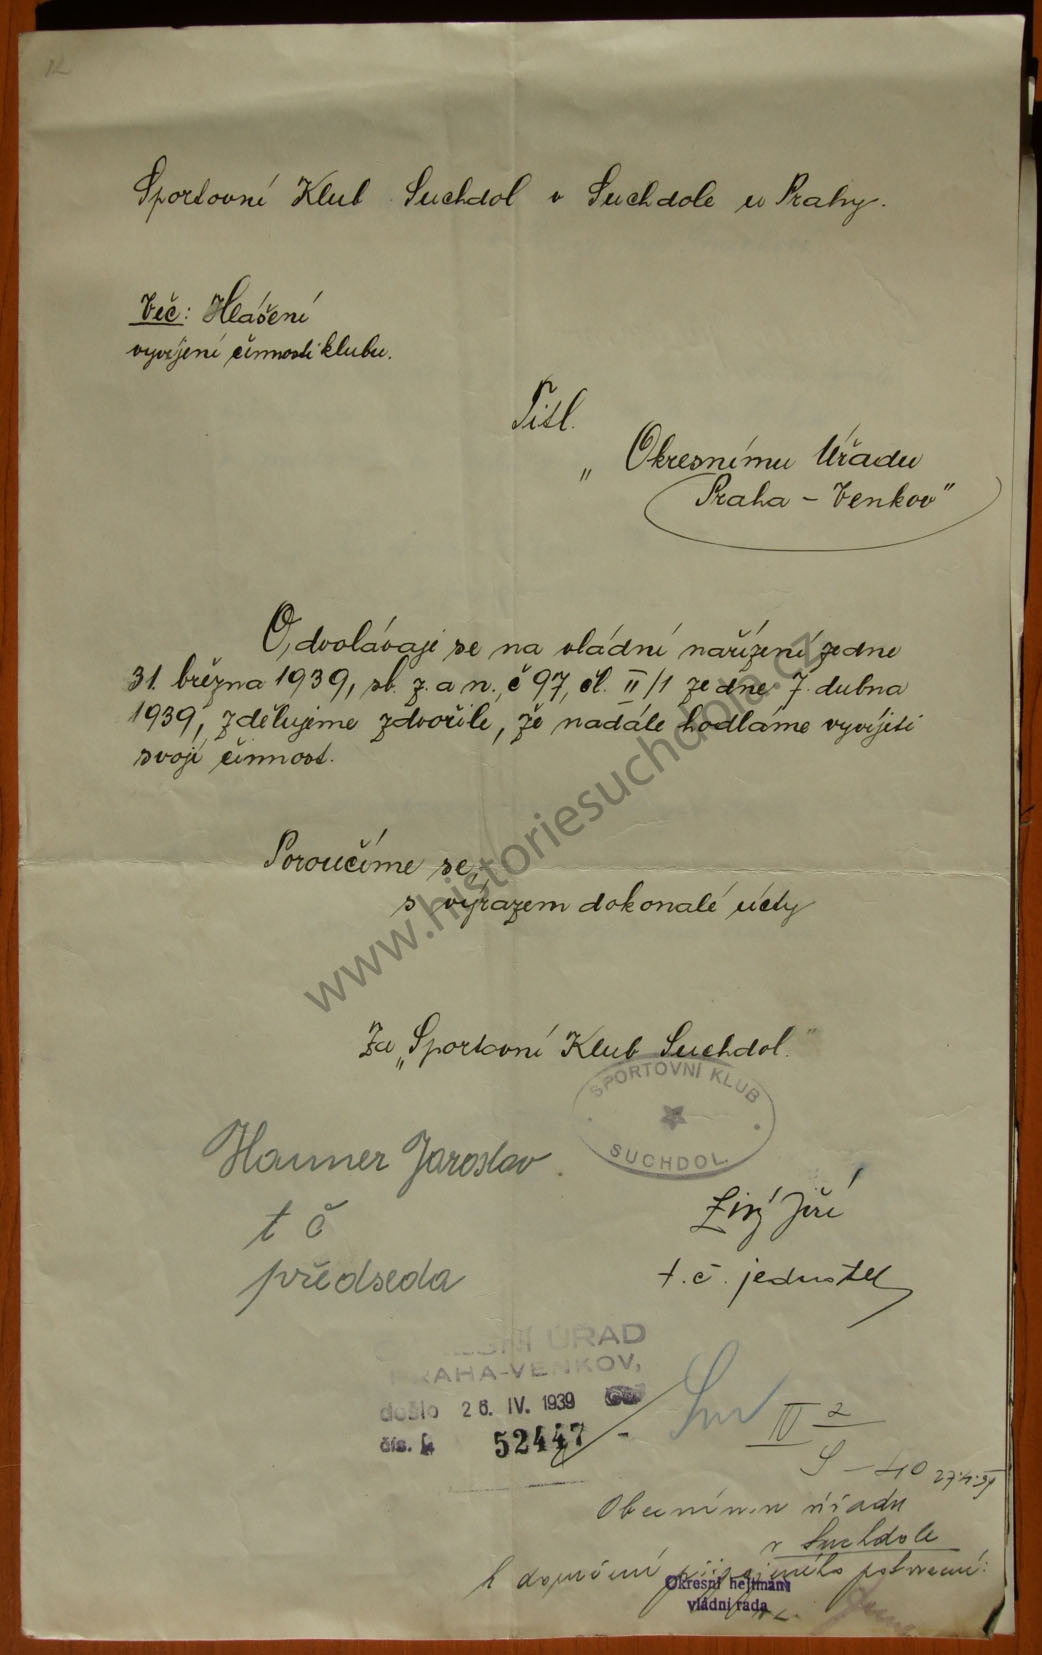 Sportovní Klub Suchdol v Suchdole u Prahy.
Věc: Hlášení
vyvíjení činnosti klubu.
Titl.
„Okresnímu Úřadu
Praha – Venkov"
Odvolávaje se na vládní nařízení ze dne
31. března 1939, sb. z. a n., č 97, čl. II/1 ze dne 7. dubna
1939, zdělujeme zdvořile, že nadále hodláme vyvíjeti
svojí činnost.
Poroučíme se,
s výrazem dokonalé úcty
Za „Sportovní Klub Suchdol."
SPORTOVNÍ KLUB
SUCHDOL
Jaroslav
t č
předseda
Jiří
t. č. jednatel
ÚŘAD
PRAHA-VENKOV,
došlo 26. IV. 1939
čís. 52447
IV 2
S – 40 27.4.39
Obecnímu úřadu
v Suchdole
k doručení připojeného potvrzení:
Okresní hejtman:
vládní rada
www.historiesuchdola.cz